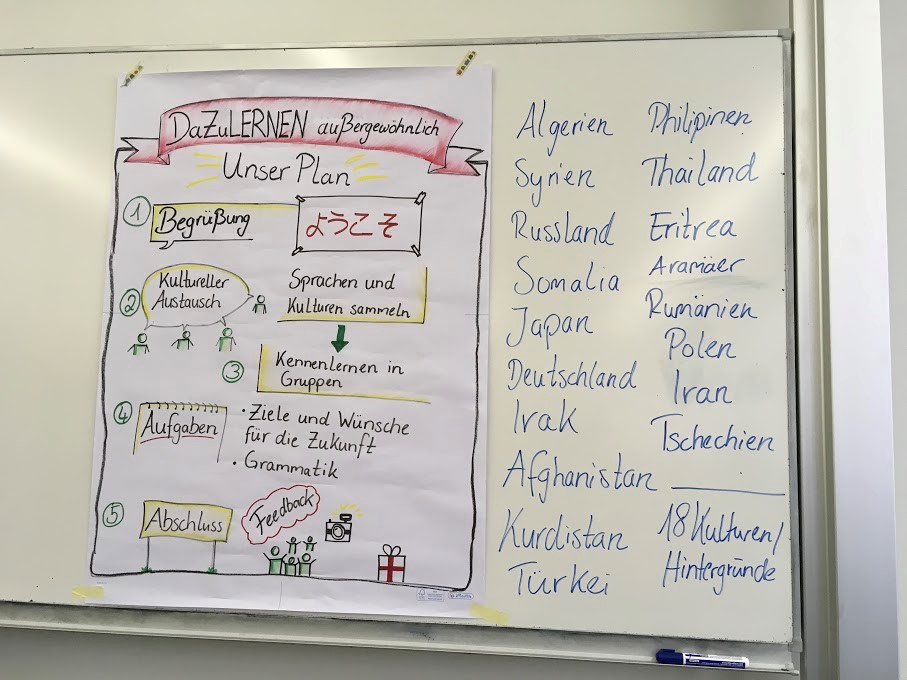 DaZuLERNEN außergewöhnlich
Unser Plan
1 Begrüßung
ようこそ
2 Kultureller
Austausch
Sprachen und
Kulturen sammeln
3 Kennenlernen in
Gruppen
4 Aufgaben
• Ziele und Wünsche
für die Zukunft
• Grammatik
5 Abschluss
Feedback
Algerien
Syrien
Russland
Somalia
Japan
Deutschland
Irak
Afghanistan
Kurdistan
Türkei
Philipinen
Thailand
Eritrea
Aramäer
Rumänien
Polen
Iran
Tschechien
18 Kulturen/
Hintergründe